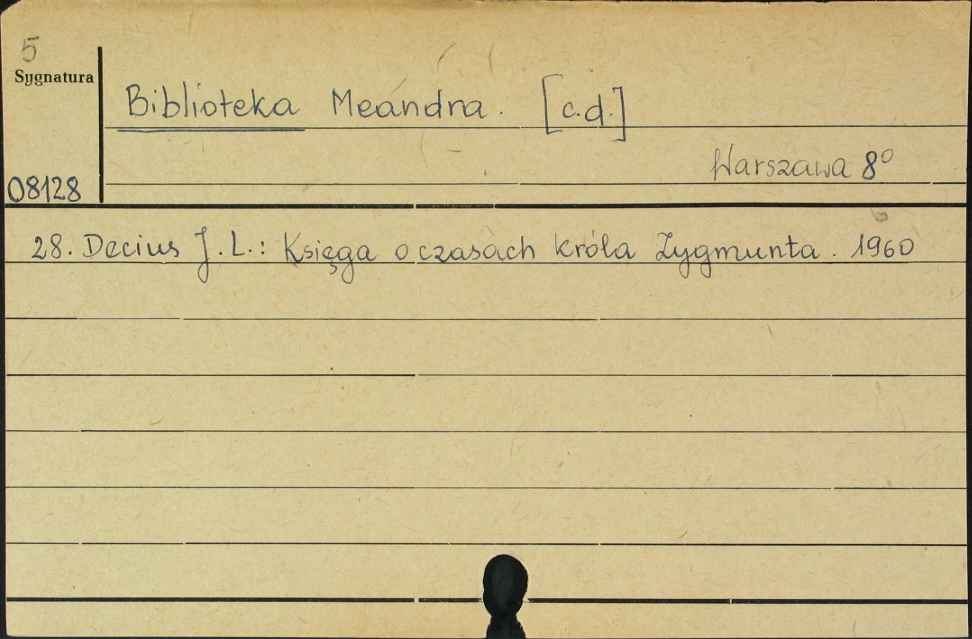 5
Sygnatura
Biblioteka Meandra. [c.d.]
Warszawa 8°
08128
28. Decius J.L.: Księga o czasach króla Zygmunta. 1960